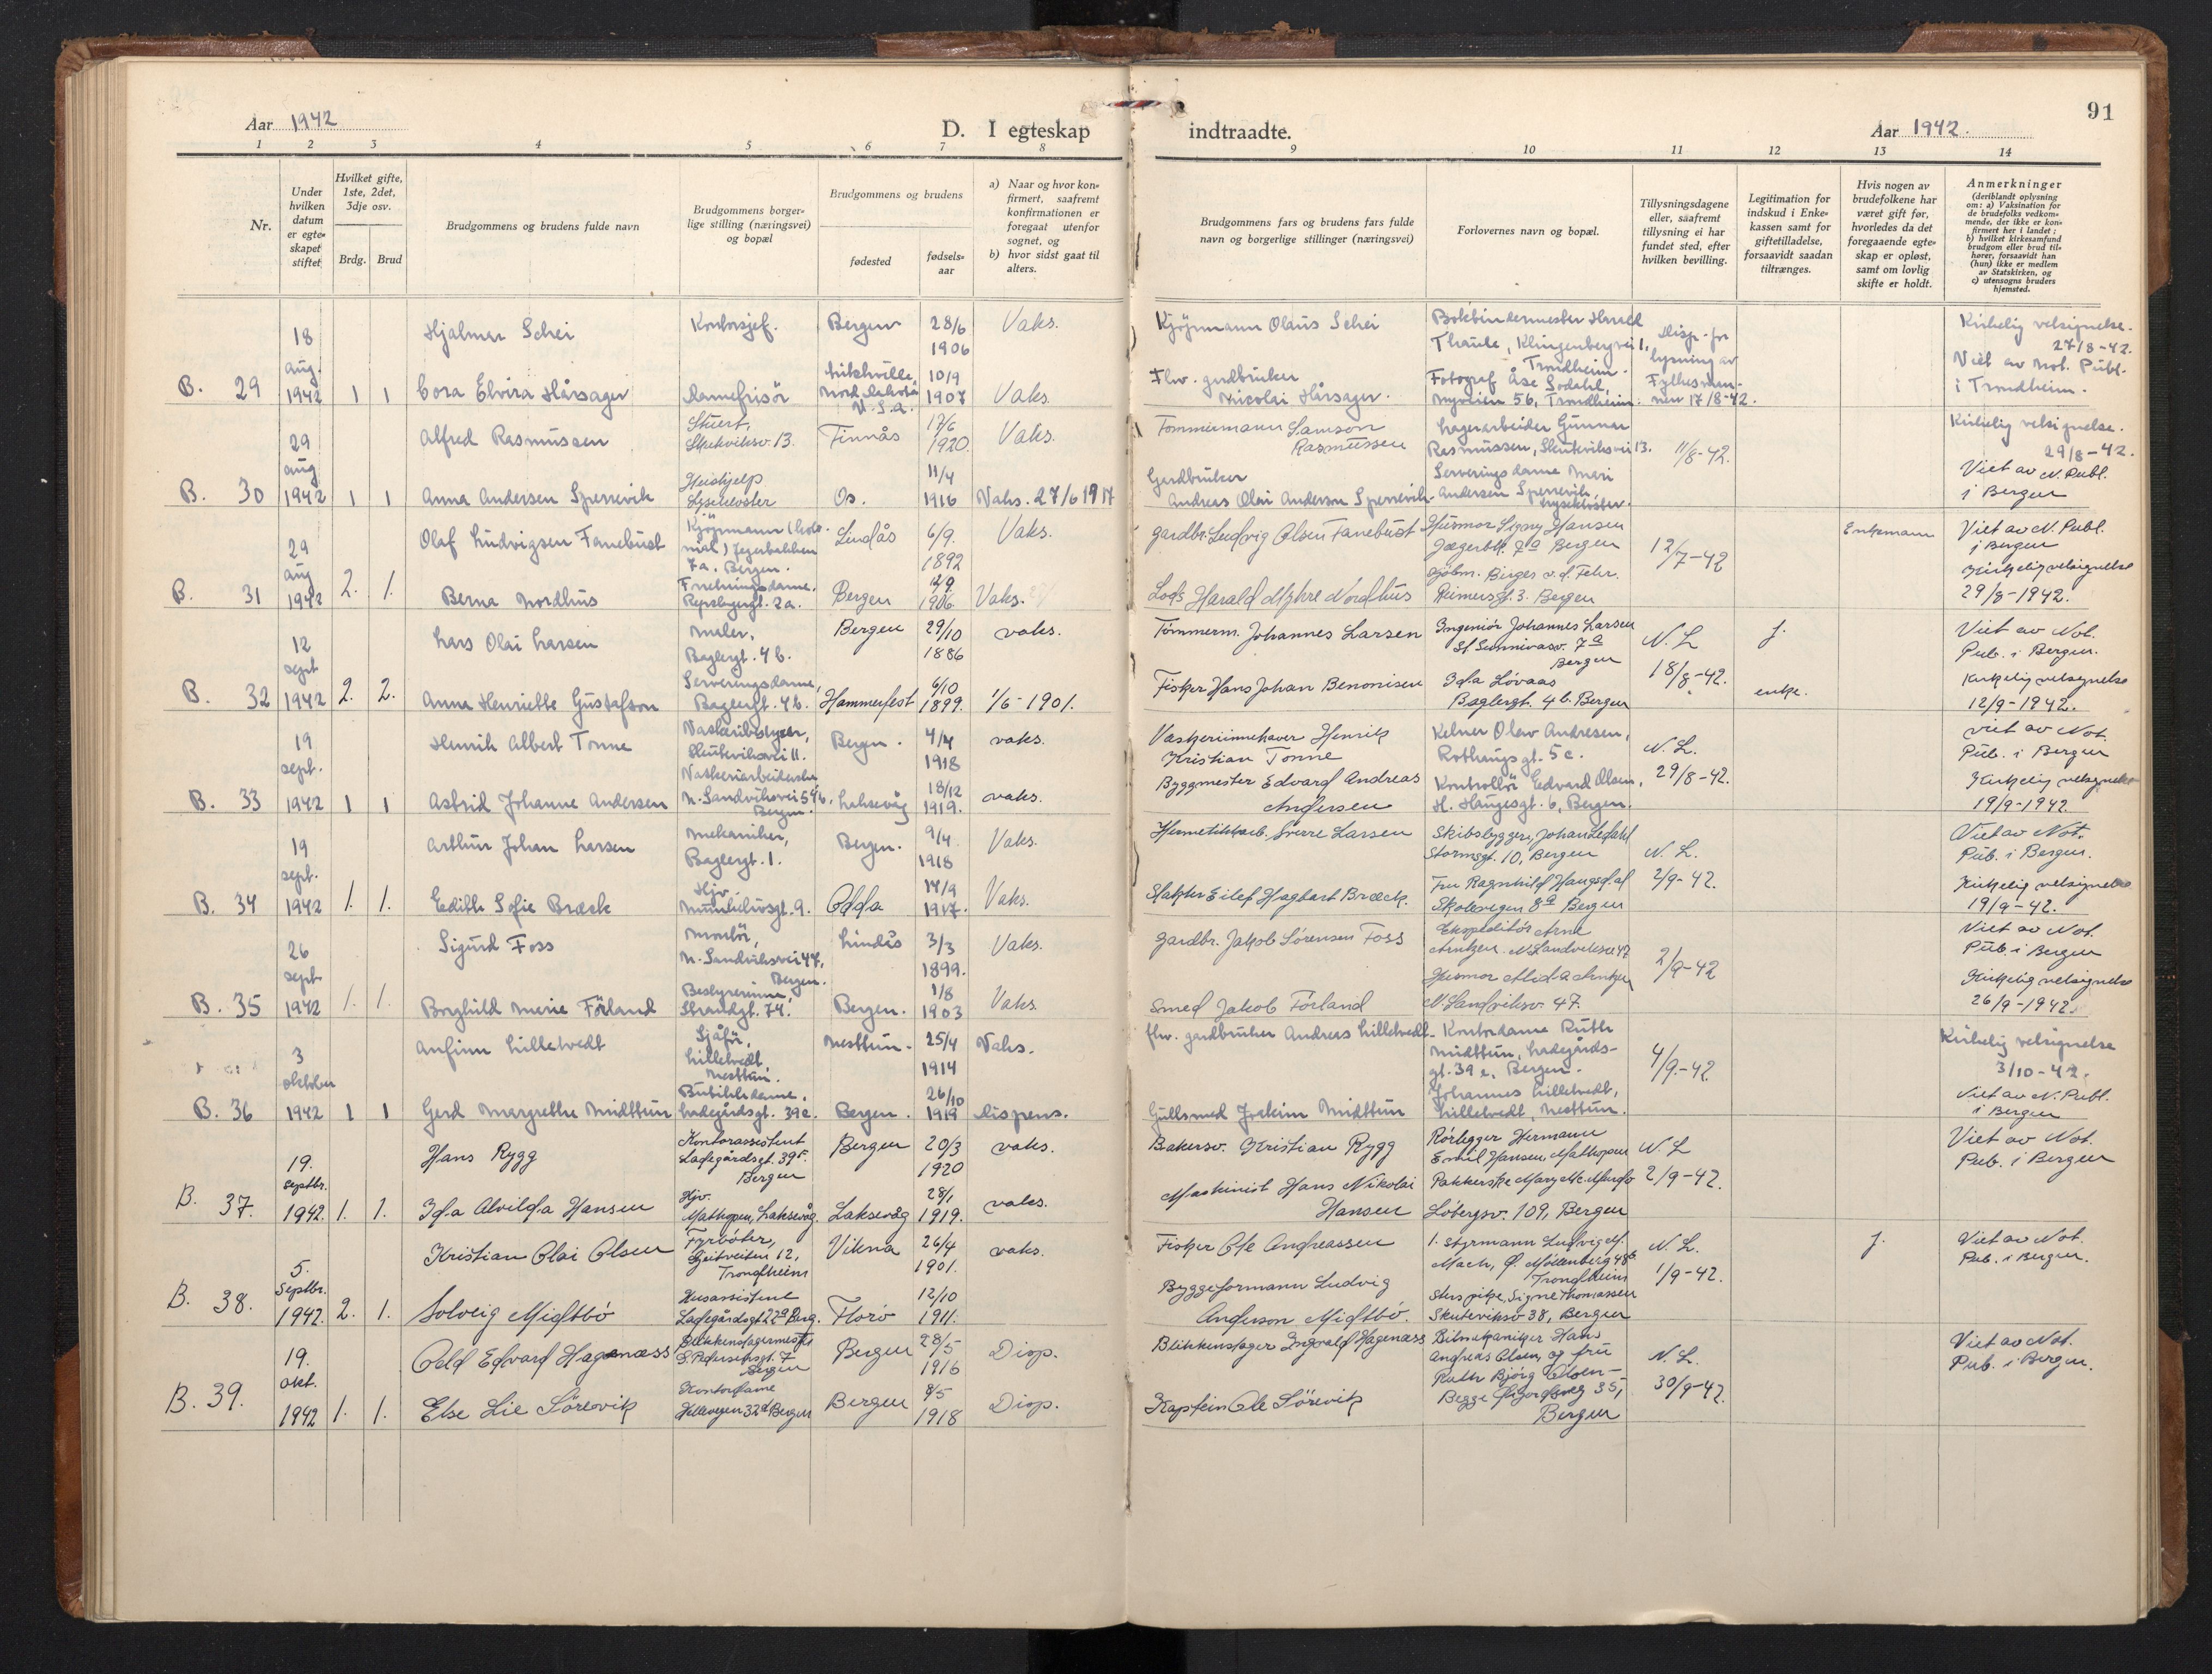 91
Aar 1942
D. I egteskap
indtraadte.
Aar 1942.
1 2 3 4 5 6 7 8
9 10 11 12 13 14
Nr.
Under
hvilken
datum
er egte=
skapet
stiftet
Hvilket gifte,
1ste, 2det,
3dje osv.
Brdg. Brud
Brudgommens og brudens fulde navn
Brudgommens borger=
lige stilling (næringsvei)
og bopæl
Brudgommens og brudens
fødested
fødsels=
aar
a) Naar og hvor kon=
firmert, saafremt
konfirmationen er
foregaat utenfor
sognet, og
b) hvor sidst gaat til
alters.
Brudgommens fars og brudens fars fulde
navn og borgerlige stillinger (næringsvei)
Forlovernes navn og bopæl.
Tillysningsdagene
eller, saafremt
tillysning ei har
fundet sted, efter
hvilken bevilling.
Legitimation for
indskud i Enke=
kassen samt for
giftetilladelse,
forsaavidt saadan
tiltrænges.
Hvis nogen av
brudefolkene har
været gift før,
hvorledes da det
foregaaende egte=
skap er opløst,
samt om lovlig
skifte er holdt.
Anmerkninger
(deriblandt oplysning
om: a) Vaksination for
de brudefolks vedkom=
mende, der ikke er kon=
firmert her i landet;
b) hvilket kirkesamfund
brudgom eller brud til=
hører, forsaavidt han
(hun) ikke er medlem
av Statskirken, og
c) utensogns bruders
hjemsted.
B. 29
18
aug.
1942
1 1
Hjalmar Schei
Kontorsjef.
Bergen
28/6
1906
Vaks.
Cora Elvira Hårsager
Damefrisör
Nord Dakota
U.S.a.
10/9
1907
Vaks.
Kjöpmann Olaus Schei
Flw. gardbruker
Nicolai Hårsager.
Bokbindermester Harald
Thaule, Klingenbergvei 1,
Trondheim.
Fotograf Åse Sodahl,
56, Trondheim.
Disp. for
lysning av
Fylkesman-
nen 17/8-42.
Kirkelig velsignelse.
27/8-42.
Viet av Not. Publ.
i Trondheim.
B. 30
29
aug
1942
1 1
Alfred Rasmussen
Stuert,
Skutviksv. 13.
Finnås
17/6
1920.
Vaks.
Anna Andersen Sperrevik
Hushjelp
Lysekloster
Os.
11/4
1916
Vaks. 27/6 1917
Tømmermann Samson
Rasmussen
Gardbruker
Andreas Olai Anderson Sperrevik
Lagerarbeider Gunnar
Rasmussen, Skutviksvei 13.
Serveringsdame Mari
Andersen Sperrevik,
Lysekloster.
11/8-42.
Kirkelig velsignelse.
29/8-42.
Viet av N. Publ.
i Bergen
B. 31
29
aug
1942
2. 1.
Olaf Ludvigsen Fanebust
Kjöpmann (kolo-
nial) Jegerbakken
7a. Bergen.
Lindås
6/9.
1892
Vaks.
Berna Nordhus
Forretningsdame.
Repslagergt. 2a.
Bergen
12/9
1906.
Vaks.
gardbr. Ludvig Olsen Fanebust
Lods Harald Myhre Nordhus
Husmor Signy Hansen
Jægerbk. 7a Bergen
Kjøbm. Birger v.d. Fehr.
Reimersgt. 3. Bergen
12/7-42
Enkemann
Viet av N. Publ.
i Bergen
Kirkelig velsignelse
29/8-1942.
B. 32
12
sept
1942
2. 2.
Lars Olai Larsen
Maler,
Baglergt. 4b.
Bergen
29/10
1886
vaks.
Anna Henriette Gustafson
Serveringsdame,
Baglergt. 4b.
Hammerfest
6/10
1899.
1/6-1901.
Tømmerm. Johannes Larsen
Fisker Hans Johan Benonisen
Ingeniør Johannes Larsen
St Sunnivasv. 7a
Bergen
Ida Løvaas
Baglergt. 4b. Bergen
N. L
18/8-42.
f.
enke.
Viet av Not.
Pub. i Bergen.
Kirkelig velsignelse
12/9-1942.
B. 33
19
sept.
1942
1 1
Henrik Albert Tonne
Vaskeribestyrer,
Skuteviksvei 11.
Bergen.
4/4
1918
vaks.
Astrid Johanne Andersen
Vaskeriarbeiderske
N. Sandviksvei 54b.
Bergen.
Laksevåg
18/12
1919.
vaks.
Vaskeriinnehaver Henrik
Kristian Tonne
Byggmester Edvard Andreas
Andersen
Kelner Olav Andresen,
Rothaugsgt. 5c.
Kontrollör Edvard Olsen,
H. Haugesgt. 6, Bergen.
N. L.
29/8-42.
viet av Not.
Pub. i Bergen
Kirkelig velsignelse
19/9-1942.
B. 34
19
sept.
1942
1. 1.
Arthur Johan Larsen
Mekaniker,
Baglergt. 1.
Bergen.
9/4.
1918
Vaks.
Edith Sofie Bræck
Hjv.
9.
Odda
14/9
1917.
Vaks.
Hermetikkarb. Sverre Larsen
Slakter Eilef Hagbart Bræck.
Skibsbygger, Johan Ledahl
Stormsgt. 10, Bergen
Fru Ragnhild Haugsdal
Skolevegen 8a Bergen
N. L.
2/9-42.
Viet av Not.
Pub. i Bergen.
Kirkelig velsignelse
19/9-42.
B. 35
26
sept
1942
1. 1.
Sigurd Foss
Montör,
N. Sandviksvei 47,
Bergen.
Lindås
3/3
1899.
Vaks.
Borghild Marie Förland
Bestyrerinne,
Strandgt. 74.
Bergen.
1/8
1903
Vaks.
Gardbr. Jakob Sørensen Foss
Smed Jakob Førland
Ekspeditør Arne
Arntzen N. Sandviksvei 47
Husmor Alida Arntzen
N. Sandviksv. 47.
2/9-42
Viet av Not.
Pub. i Bergen
Kirkelig velsignelse
26/9-1942.
B. 36
3
oktober
1942
1 1
Anfinn Lilletvedt
Sjåför,
Lilletvedt,
Nesttun.
Nesttun.
25/4
1914
Vaks.
Gerd Margrethe Midttun
Butikkdame,
Ladegårdsgt. 39e.
Bergen.
26/10
1919
dispens.
flw. gardbruker Andreas Lilletvedt
Gullsmed Joakim Midttun
Kontordame Ruth
Midttun, Ladegårds-
gt. 39e, Bergen.
Johannes Lilletvedt,
Lilletvedt, Nesttun.
4/9-42.
Kirkelig velsignelse
3/10-42.
Viet av N. Publ.
i Bergen
B. 37.
19.
septbr.
1942.
1. 1.
Hans Rygg
Kontorassistent
Ladegårdsgt. 39F.
Bergen
Bergen
20/3
1920
vaks.
Ida Alvilda Hansen
Hjv.
Mathopen, Laksevåg.
Laksevåg
28/1
1919.
vaks.
Bakersv. Kristian Rygg
Maskinist Hans Nikolai
Hansen
Rørlegger Hermann
Emil Hansen, Mathopen
Pakkerske Mary
Løbergsv. 109, Bergen
N. L
2/9-42.
Viet av Not.
Pub. i Bergen
B. 38.
5.
Septbr.
1942.
2. 1.
Kristian Olai Olsen
Fyrbøter,
Geitveiten 12,
Trondheim
Vikna
26/4
1901.
vaks.
Solveig Midtbö
Husassistent
Ladegårdsgt 22a Berg.
Florø
12/10
1911.
Fisker Ole Andreassen
Byggeformann Ludvig
Anderson Midtbö.
1. Styrmann Ludvig M.
Mach, Ø. Møllenberg 48b
Trondheim
Signe Thomassen
Skuteviksv 38, Bergen
N. L.
1/9-42.
f.
Viet av Not.
Pub. i Bergen.
B. 39.
19.
okt.
1942
1. 1.
Odd Edvard Hagenæss
Blikkenslagermester
S. Pedersensgt. 7
Bergen
Bergen
28/5
1916
Disp.
Else Lie Sörevik
Kontordame
Hellevegen 32d Bergen
Bergen
8/5
1918
Disp.
Blikkenslager Ingvald Hagenæss
Kaptein Ole Sörevik
Bilmekaniker Hans
Andreas Olsen, og fru
Ruth Bjørg Olsen-
Begge 35,
Bergen
N. L.
30/9-42.
Viet av Not.
Pub. i Bergen.